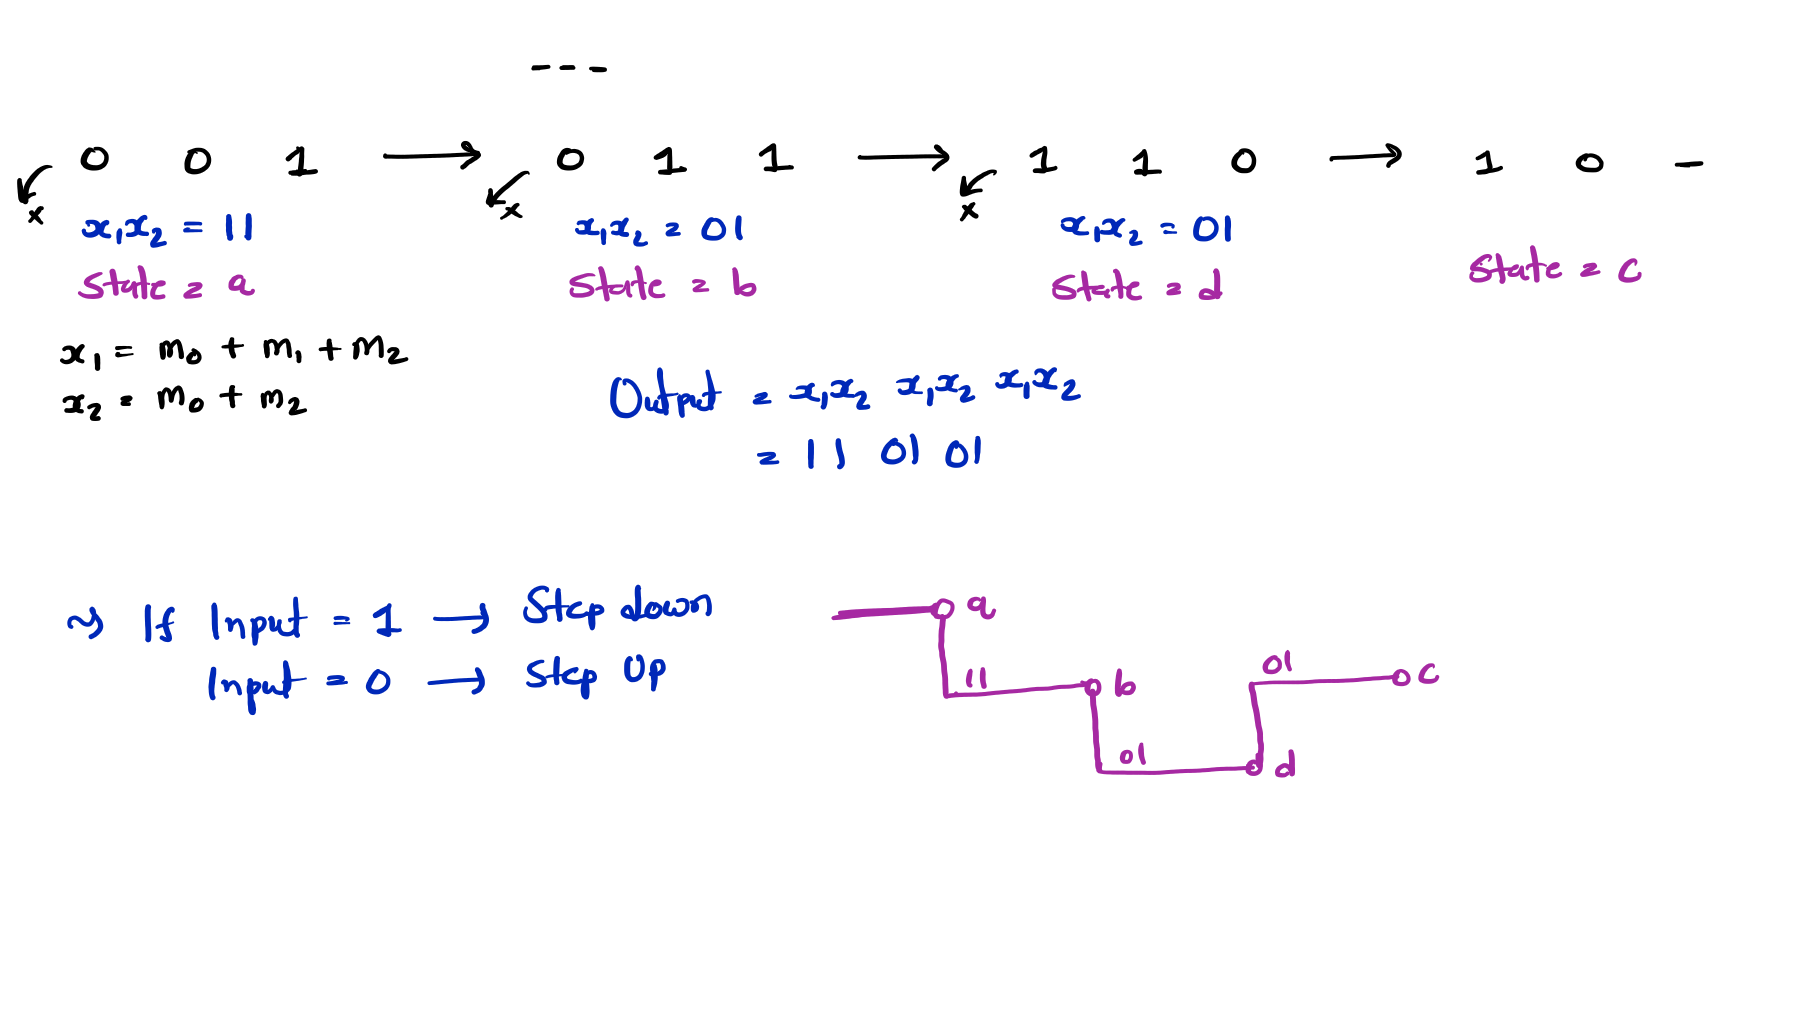 ---
0 0 1 → 0 1 1 → 1 1 0 → 1 0 –
x x x
x₁x₂ = 11 x₁x₂ = 01 x₁x₂ = 01
State = a State = b State = d State = c
x₁ = m₀ + m₁ + m₂
x₂ = m₀ + m₂
Output = x₁x₂ x₁x₂ x₁x₂
= 11 01 01
~> If Input = 1 → Step down
Input = 0 → Step Up
a
11 b
01 d
01 c